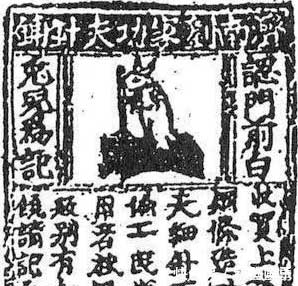 濟南劉家功夫針鋪
認門前白
兔兒為記
收買上
鋼條造
夫細針
偷工民
用若被
販別有
饒請記